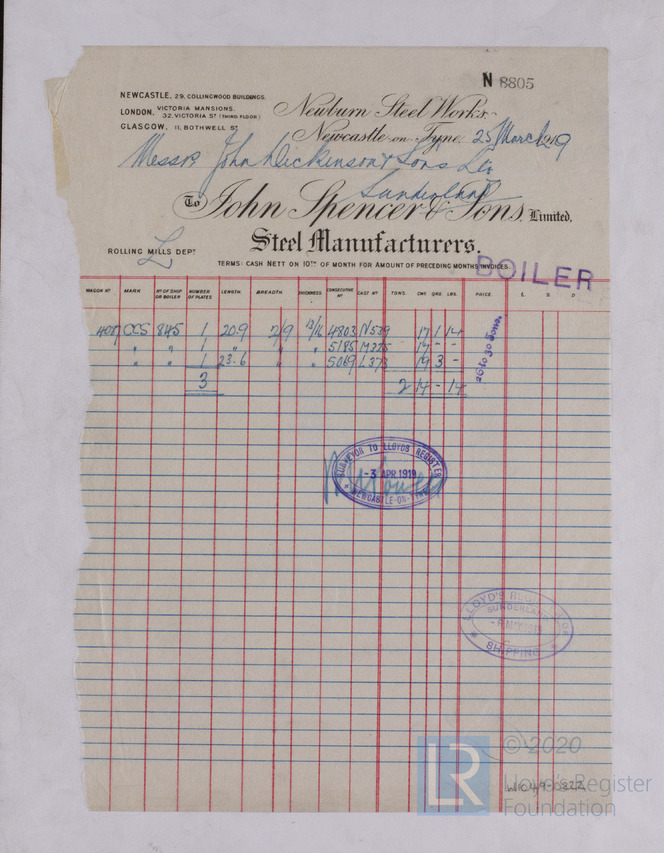 N 8805
NEWCASTLE, 29, COLLINGWOOD BUILDINGS.
LONDON, VICTORIA MANSIONS, 32, VICTORIA ST (THIRD FLOOR)
GLASGOW, 11, BOTHWELL ST
Newburn Steel Works,
Newcastle-on-Tyne, 25 March 1919
Messrs John Dickinson & Sons Ltd
Sunderland
To John Spencer & Sons, Limited,
Steel Manufacturers.
ROLLING MILLS DEPT
TERMS: CASH NETT ON 10TH OF MONTH FOR AMOUNT OF PRECEDING MONTHS INVOICES.
BOILER
WAGON No MARK No OF SHIP OR BOILER NUMBER OF PLATES LENGTH. BREADTH. THICKNESS CONSECUTIVE No CAST No TONS. CWT QRS. LBS. PRICE. £ S D
CCS 845 1 20.9 7/9 13/16 4803 N539 17 1 14
" " 1 " " " 5185 M225 17 - -
" " 1 23.6 " " 5069 L373 19 3 -
3 2 14 - 14
26 to 30 tons.
SURVEYOR TO LLOYDS REGISTER
-3 APR 1919
NEWCASTLE-ON-TYNE
LLOYD'S REGISTER OF
SUNDERLAND
SHIPPING
LR
© 2020
Lloyd's Register
Foundation